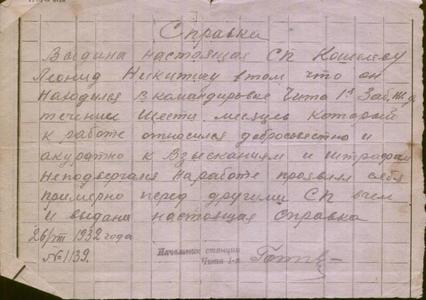 Справка
Выдана настоящая СП Кошелеву
Леонид Никитичу в том что он
находился в командировке Чита 1я Заб. жд
течение шести месяцев который
к работе относился добросовестно и
акуратно к взысканиям и штрафам
неподвергался на работе проявлял себя
примерно перед другими СП в чем
и выдана настоящая справка
26/III 1932 года
№ 1139.
Начальник станции
Чита 1-я